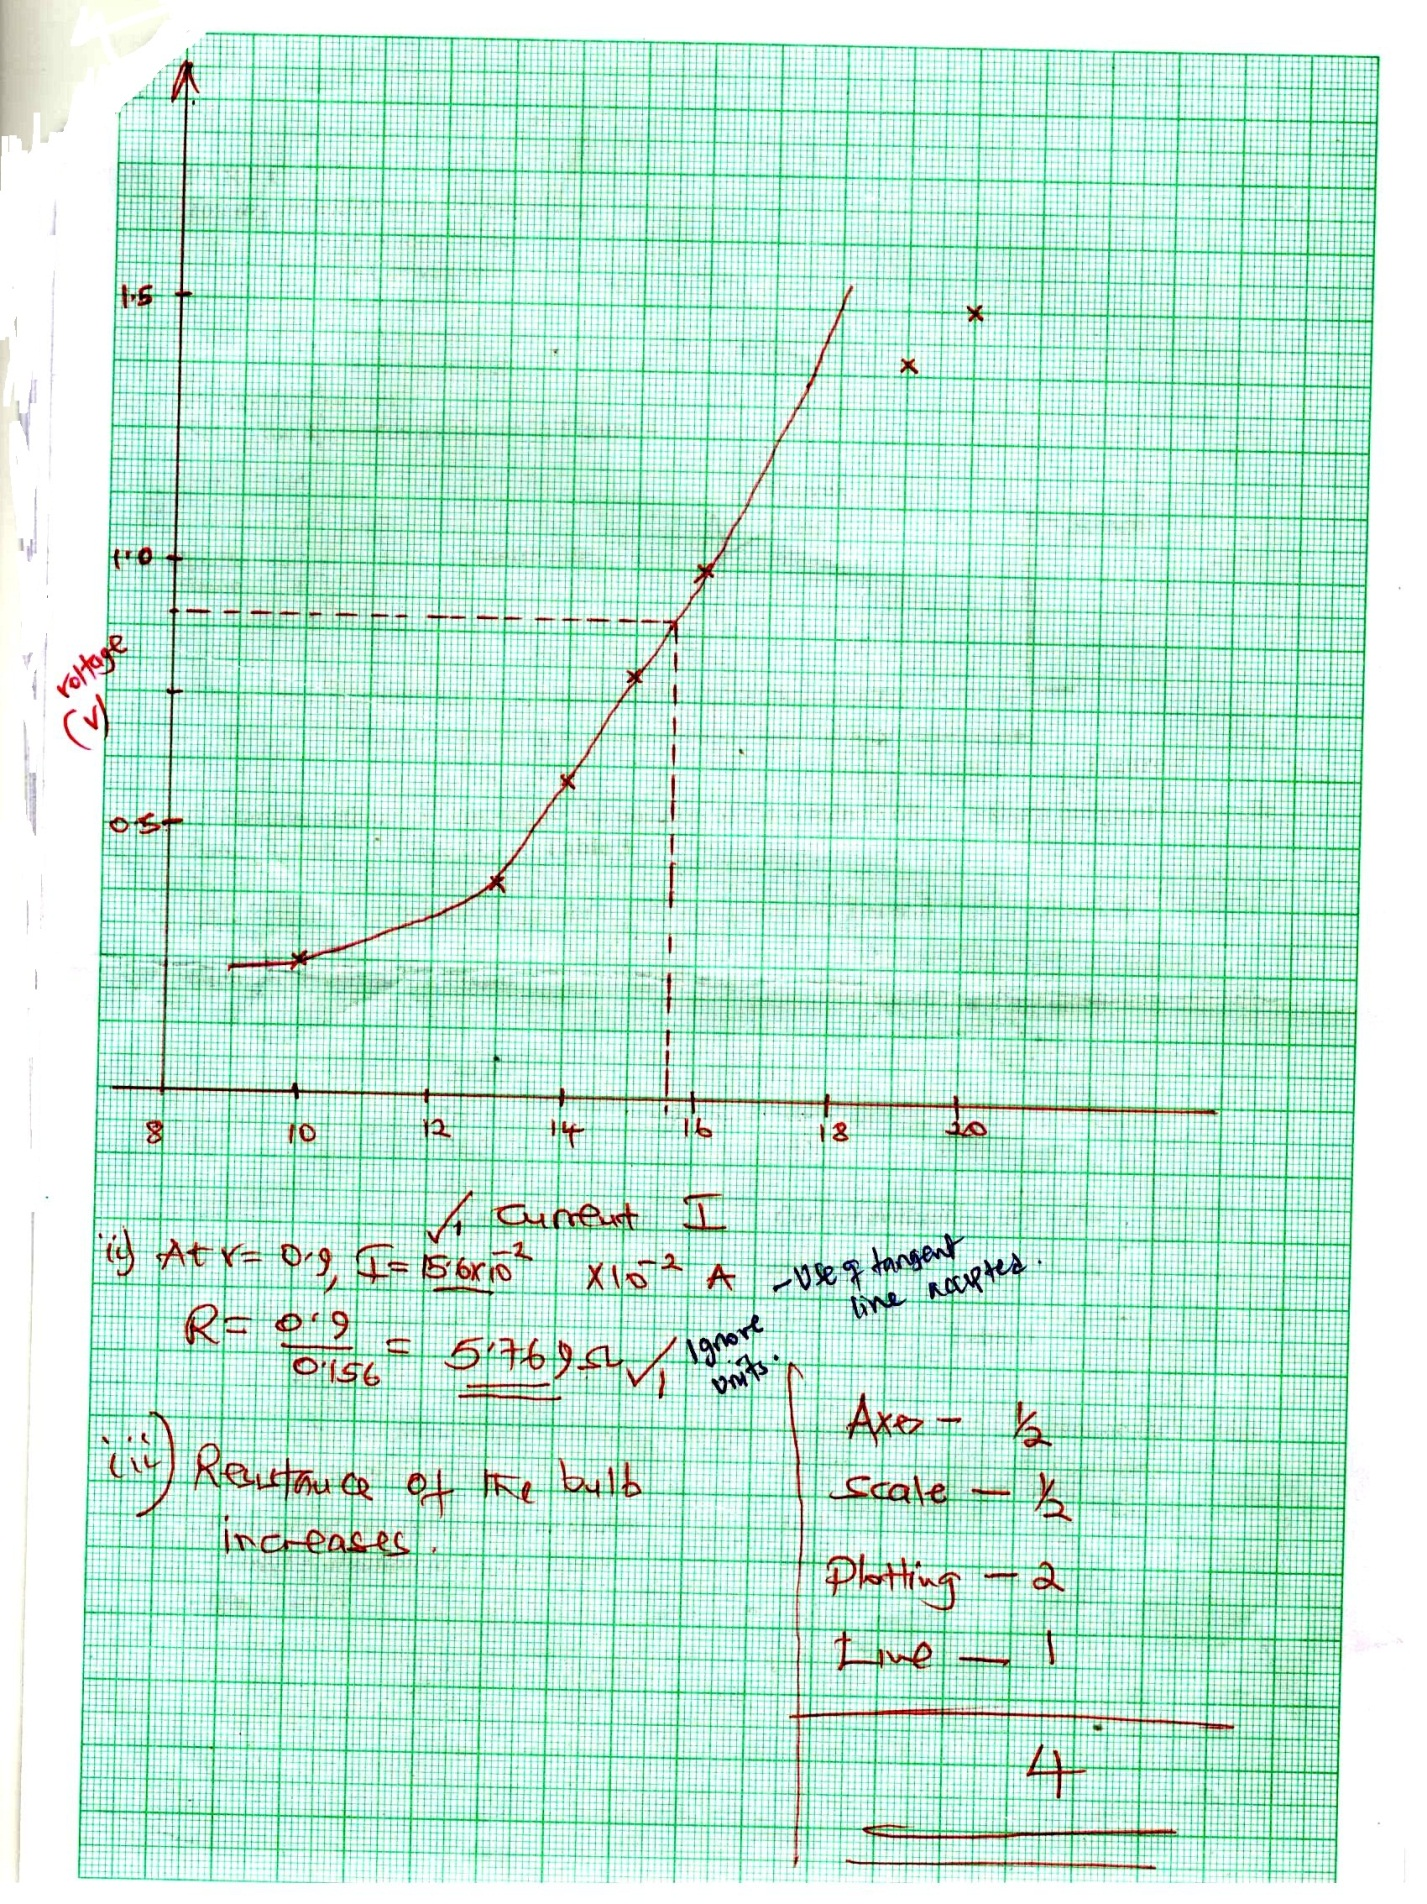 1.5
1.0
voltage
(V)
0.5
8 10 12 14 16 18 20
✓1 Current I
ii) At V= 0.9, I= 15.6x10⁻² X10⁻² A -Use of tangent
line accepted.
R= 0.9/0.156 = 5.769Ω ✓1 Ignore
units.
iii) Resistance of the bulb
increases.
Axes - ½
Scale - ½
Plotting - 2
Line - 1
4